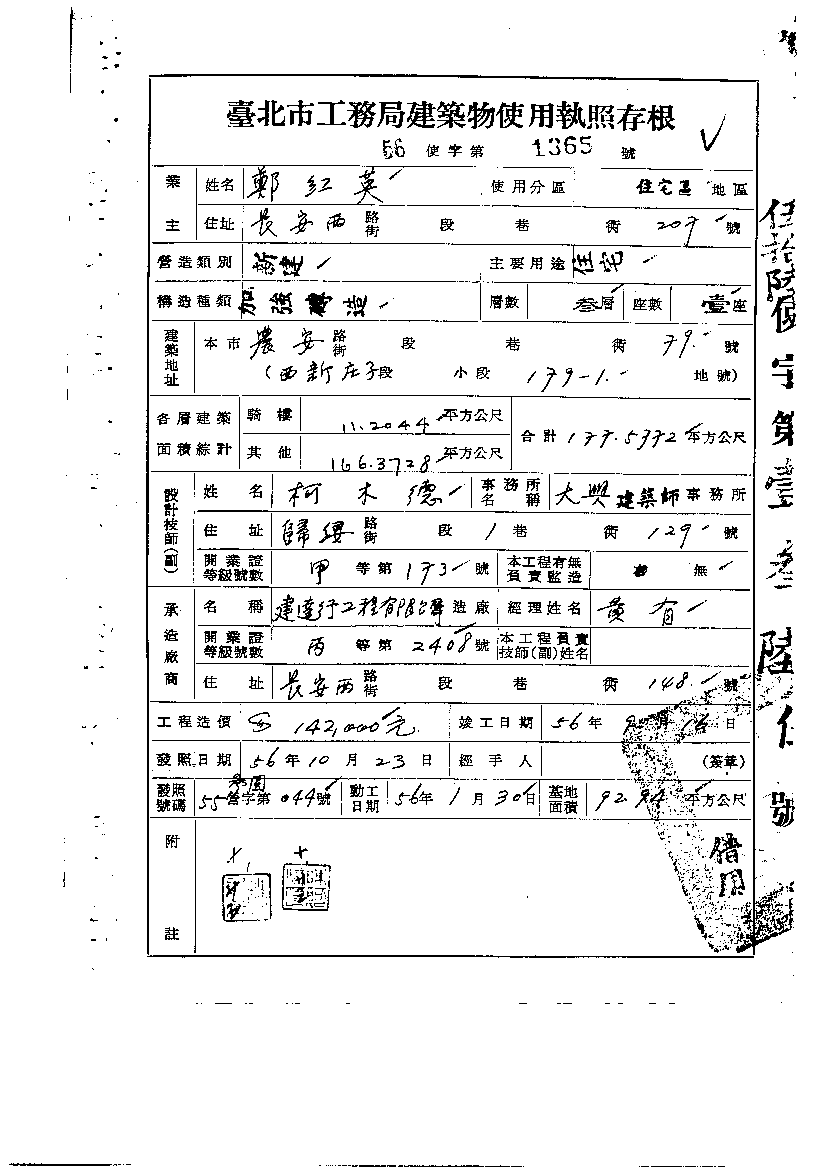 臺北市工務局建築物使用執照存根
56 使字第 1365 號
業主 姓名 鄭紅英 使用分區 住宅區 地區
住址 長安西 路街 段 巷 街 207 號
營造類別 新建 主要用途 住宅
構造種類 加強磚造 層數 叁層 座數 壹座
建築地址 本市 農安 路街 段 巷 街 79 號
(西新庄子段 小段 179-1 地號)
各層建築面積綜計 騎樓 11.2044 平方公尺 合計 177.5772 平方公尺
其他 166.3728 平方公尺
設計技師(副) 姓名 柯木德 事務所名稱 大興建築師事務所
住址 歸綏 路街 段 1巷 街 129 號
開業證等級號數 甲 等第 173 號 本工程有無負責監造 無
承造廠商 名稱 建達行工程有限公司 造廠 經理姓名 黃有
開業證等級號數 丙 等第 2408 號 本工程負責技師(副)姓名
住址 長安西 路街 段 巷 街 148 號
工程造價 142,000元 竣工日期 56年 9月 12日
發照日期 56年 10月 23日 經手人 (簽章)
發照號碼 55營字第 044號 動工日期 56年 1月 30日 基地面積 92.94 平方公尺
附註
借用
伍拾陸使字第壹叁陸伍號